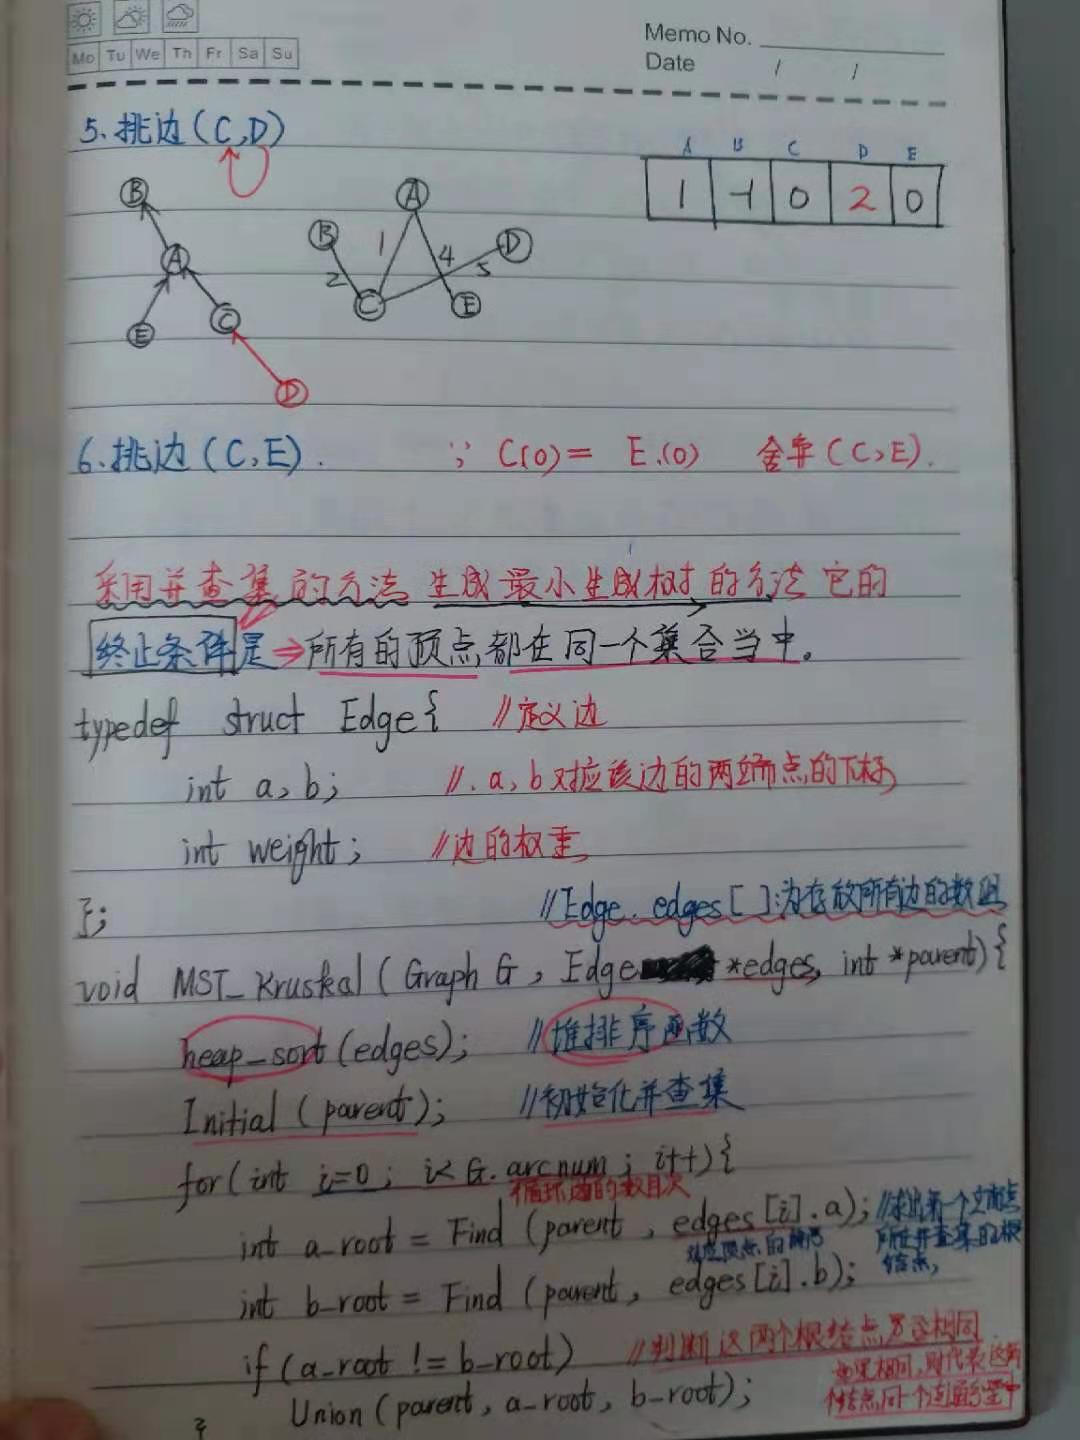 Mo Tu We Th Fr Sa Su
Memo No.
Date / /
5.挑边(C,D)
A B C D E
1 -1 0 2 0
B
A
E
C
D
A
B
D
C
E
1
2
4
5
6.挑边(C,E).
∵ C(0)= E.(0) 舍弃(C,E).
采用并查集的方法 生成最小生成树的方法它的
终止条件是⇒所有的顶点都在同一个集合当中。
typedef struct Edge{ //定义边
int a,b; //.a,b对应该边的两端点的下标
int weight; //边的权重
};
//Edge. edges[]:为存放所有边的数组
void MST_Kruskal(Graph G, Edge *edges, int *parent){
heap_sort(edges); //堆排序函数
Initial(parent); //初始化并查集
for(int i=0; i<G.arcnum; i++){
循环边的数目次
int a_root = Find(parent, edges[i].a); //求出第一个
对应顶点的
所在并查集的根
结点,
int b_root = Find(parent, edges[i].b);
if(a_root != b_root) //判断这两个根结点是否相同
如果相同,则代表这两
个结点同一个连通分量中
Union(parent, a_root, b_root);